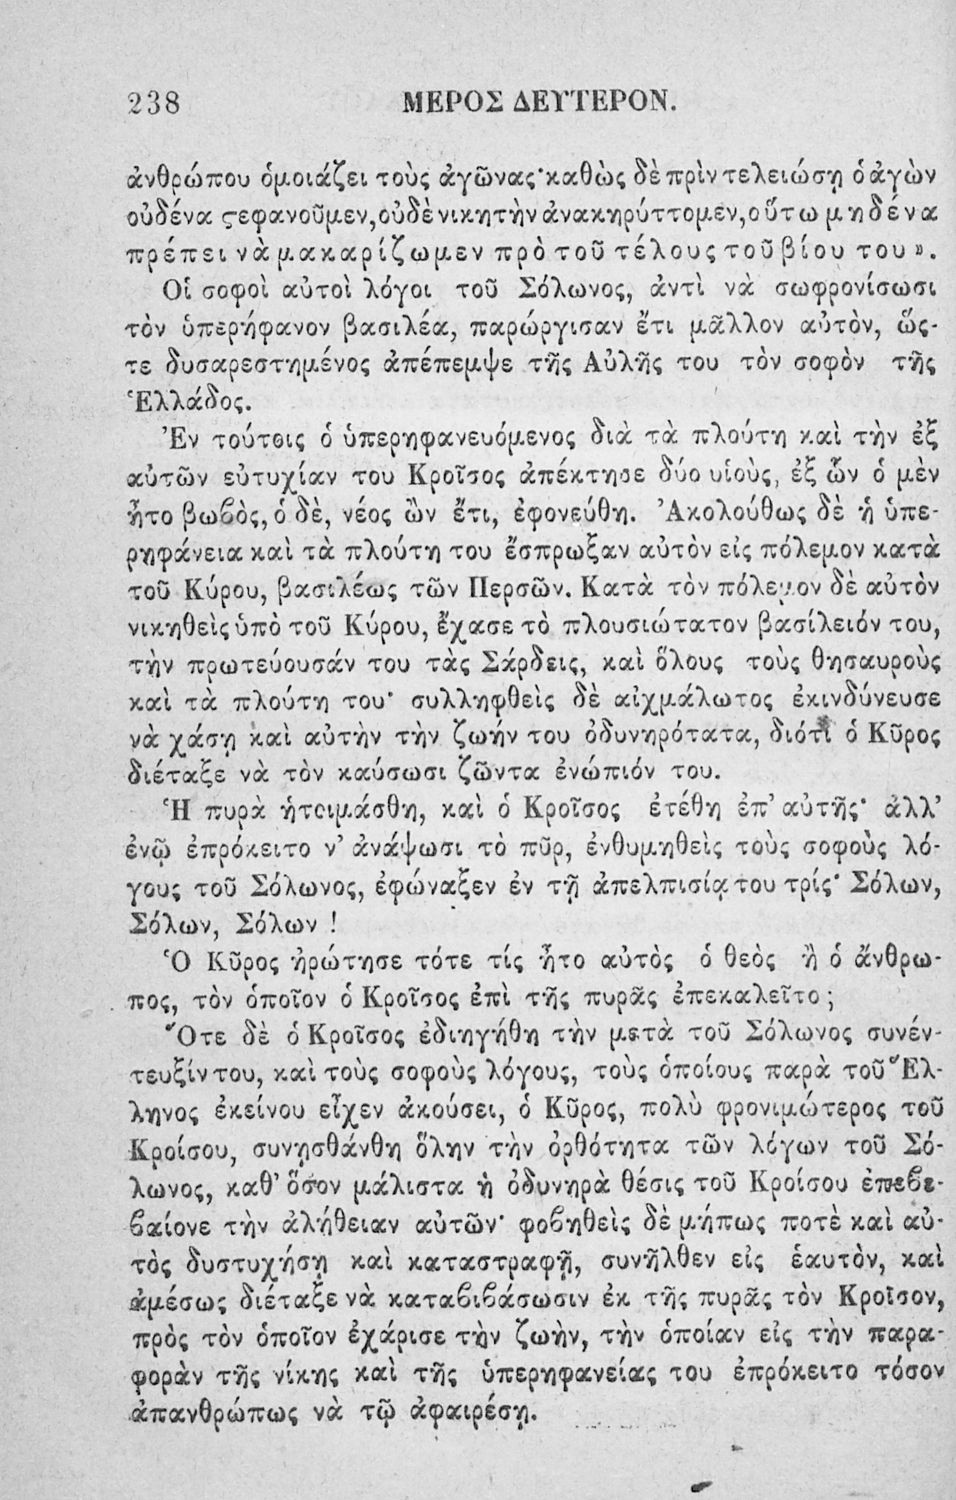 238 ΜΕΡΟΣ ΔΕΥΤΕΡΟΝ.
ἀνθρώπου ὁμοιάζει τοὺς ἀγῶνας· καθὼς δὲ πρὶν τελειώσῃ ὁ ἀγὼν
οὐδένα ϛεφανοῦμεν, οὐδὲ νικητὴν ἀνακηρύττομεν, οὕτω μηδένα
πρέπει νὰ μακαρίζωμεν πρὸ τοῦ τέλους τοῦ βίου του ».
Οἱ σοφοὶ αὐτοὶ λόγοι τοῦ Σόλωνος, ἀντὶ νὰ σωφρονίσωσι
τὸν ὑπερήφανον βασιλέα, παρώργισαν ἔτι μᾶλλον αὐτὸν, ὥς-
τε δυσαρεστημένος ἀπέπεμψε τῆς Αὐλῆς του τὸν σοφὸν τῆς
Ἑλλάδος.
Ἐν τούτοις ὁ ὑπερηφανευόμενος διὰ τὰ πλούτη καὶ τὴν ἐξ
αὐτῶν εὐτυχίαν του Κροῖσος ἀπέκτησε δύο υἱοὺς, ἐξ ὧν ὁ μὲν
ἦτο βωβὸς, ὁ δὲ, νέος ὢν ἔτι, ἐφονεύθη. Ἀκολούθως δὲ ἡ ὑπε-
ρηφάνεια καὶ τὰ πλούτη του ἔσπρωξαν αὐτὸν εἰς πόλεμον κατὰ
τοῦ Κύρου, βασιλέως τῶν Περσῶν. Κατὰ τὸν πόλεμον δὲ αὐτὸν
νικηθεὶς ὑπὸ τοῦ Κύρου, ἔχασε τὸ πλουσιώτατον βασίλειόν του,
τὴν πρωτεύουσάν του τὰς Σάρδεις, καὶ ὅλους τοὺς θησαυροὺς
καὶ τὰ πλούτη του· συλληφθεὶς δὲ αἰχμάλωτος ἐκινδύνευσε
νὰ χάσῃ καὶ αὐτὴν τὴν ζωήν του ὀδυνηρότατα, διότι ὁ Κῦρος
διέταξε νὰ τὸν καύσωσι ζῶντα ἐνώπιόν του.
Ἡ πυρὰ ἡτοιμάσθη, καὶ ὁ Κροῖσος ἐτέθη ἐπ' αὐτῆς· ἀλλ'
ἐνῷ ἐπρόκειτο ν' ἀνάψωσι τὸ πῦρ, ἐνθυμηθεὶς τοὺς σοφοὺς λό-
γους τοῦ Σόλωνος, ἐφώναξεν ἐν τῇ ἀπελπισίᾳ του τρίς· Σόλων,
Σόλων, Σόλων !
Ὁ Κῦρος ἠρώτησε τότε τίς ἦτο αὐτὸς ὁ θεὸς ἢ ὁ ἄνθρω-
πος, τὸν ὁποῖον ὁ Κροῖσος ἐπὶ τῆς πυρᾶς ἐπεκαλεῖτο ;
Ὅτε δὲ ὁ Κροῖσος ἐδιηγήθη τὴν μετὰ τοῦ Σόλωνος συνέν-
τευξίν του, καὶ τοὺς σοφοὺς λόγους, τοὺς ὁποίους παρὰ τοῦ Ἕλ-
ληνος ἐκείνου εἶχεν ἀκούσει, ὁ Κῦρος, πολὺ φρονιμώτερος τοῦ
Κροίσου, συνῃσθάνθη ὅλην τὴν ὀρθότητα τῶν λόγων τοῦ Σό-
λωνος, καθ' ὅσον μάλιστα ἡ ὀδυνηρὰ θέσις τοῦ Κροίσου ἐπεβε-
βαίονε τὴν ἀλήθειαν αὐτῶν· φοβηθεὶς δὲ μήπως ποτὲ καὶ αὐ-
τὸς δυστυχήσῃ καὶ καταστραφῇ, συνῆλθεν εἰς ἑαυτὸν, καὶ
ἀμέσως διέταξε νὰ καταβιβάσωσιν ἐκ τῆς πυρᾶς τὸν Κροῖσον,
πρὸς τὸν ὁποῖον ἐχάρισε τὴν ζωὴν, τὴν ὁποίαν εἰς τὴν παρα-
φορὰν τῆς νίκης καὶ τῆς ὑπερηφανείας του ἐπρόκειτο τόσον
ἀπανθρώπως νὰ τῷ ἀφαιρέσῃ.